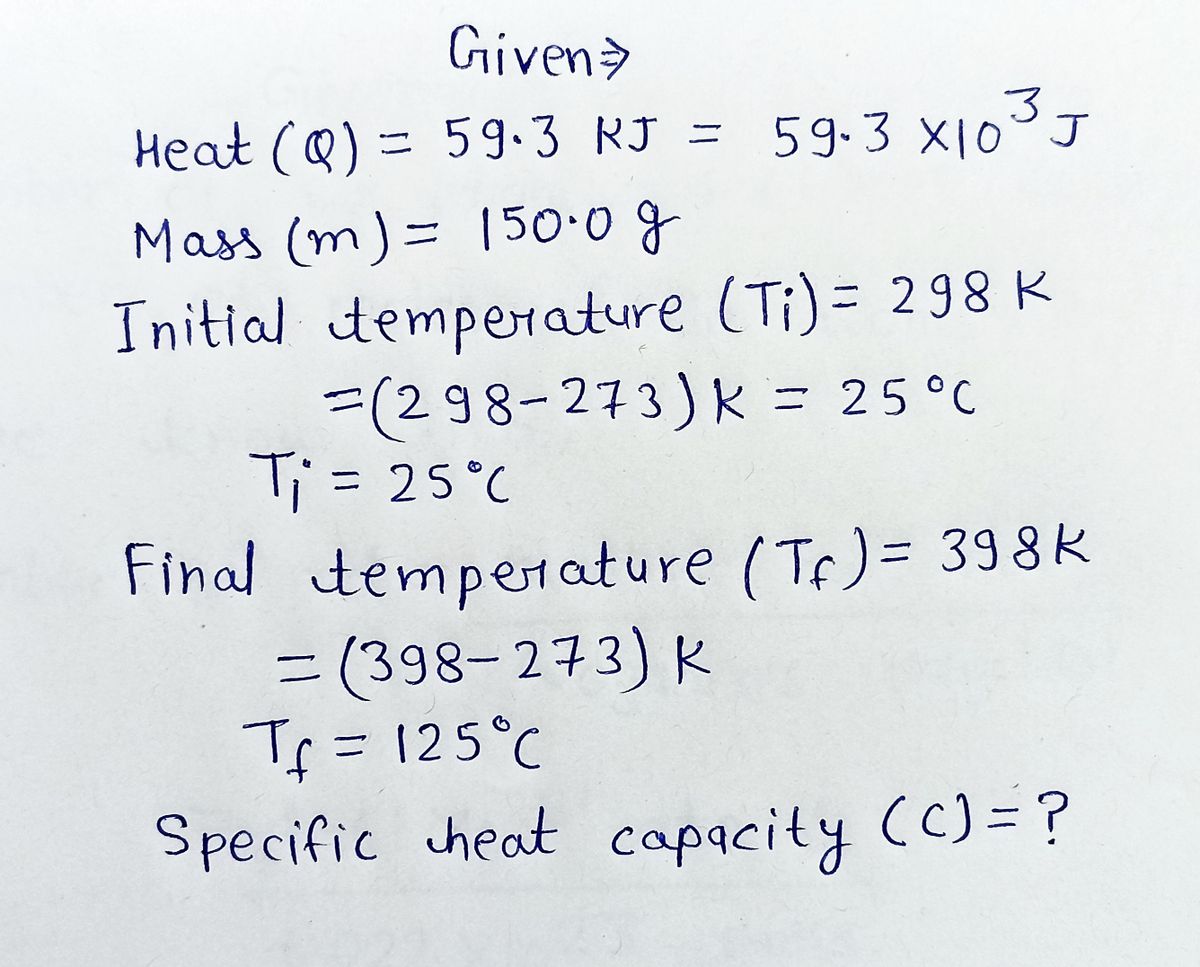 Given⇒
Heat (Q) = 59.3 KJ = 59.3 X10³ J
Mass (m) = 150.0 g
Initial temperature (Ti) = 298 K
=(298-273) K = 25°C
Ti = 25°C
Final temperature (Tf) = 398K
= (398-273) K
Tf = 125°C
Specific heat capacity (C) = ?